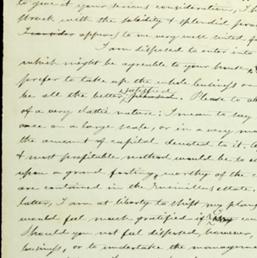 to give it your serious consideration, I
struck with the solidity & splendid
appears to me very well suited
I am disposed to enter into
which might be agreeable to your
prefer to take up the whole business
be all the better satisfied pleased. Please to
of a very elastic nature: I mean to say
on a large scale, or in a very
the amount of capital devoted to it.
& most profitable method would be to
upon a grand footing, worthy of the
are contained in the estate.
latter, I am at liberty to shift my
would feel much gratified if
Should you not feel disposed, however,
business, or to undertake the